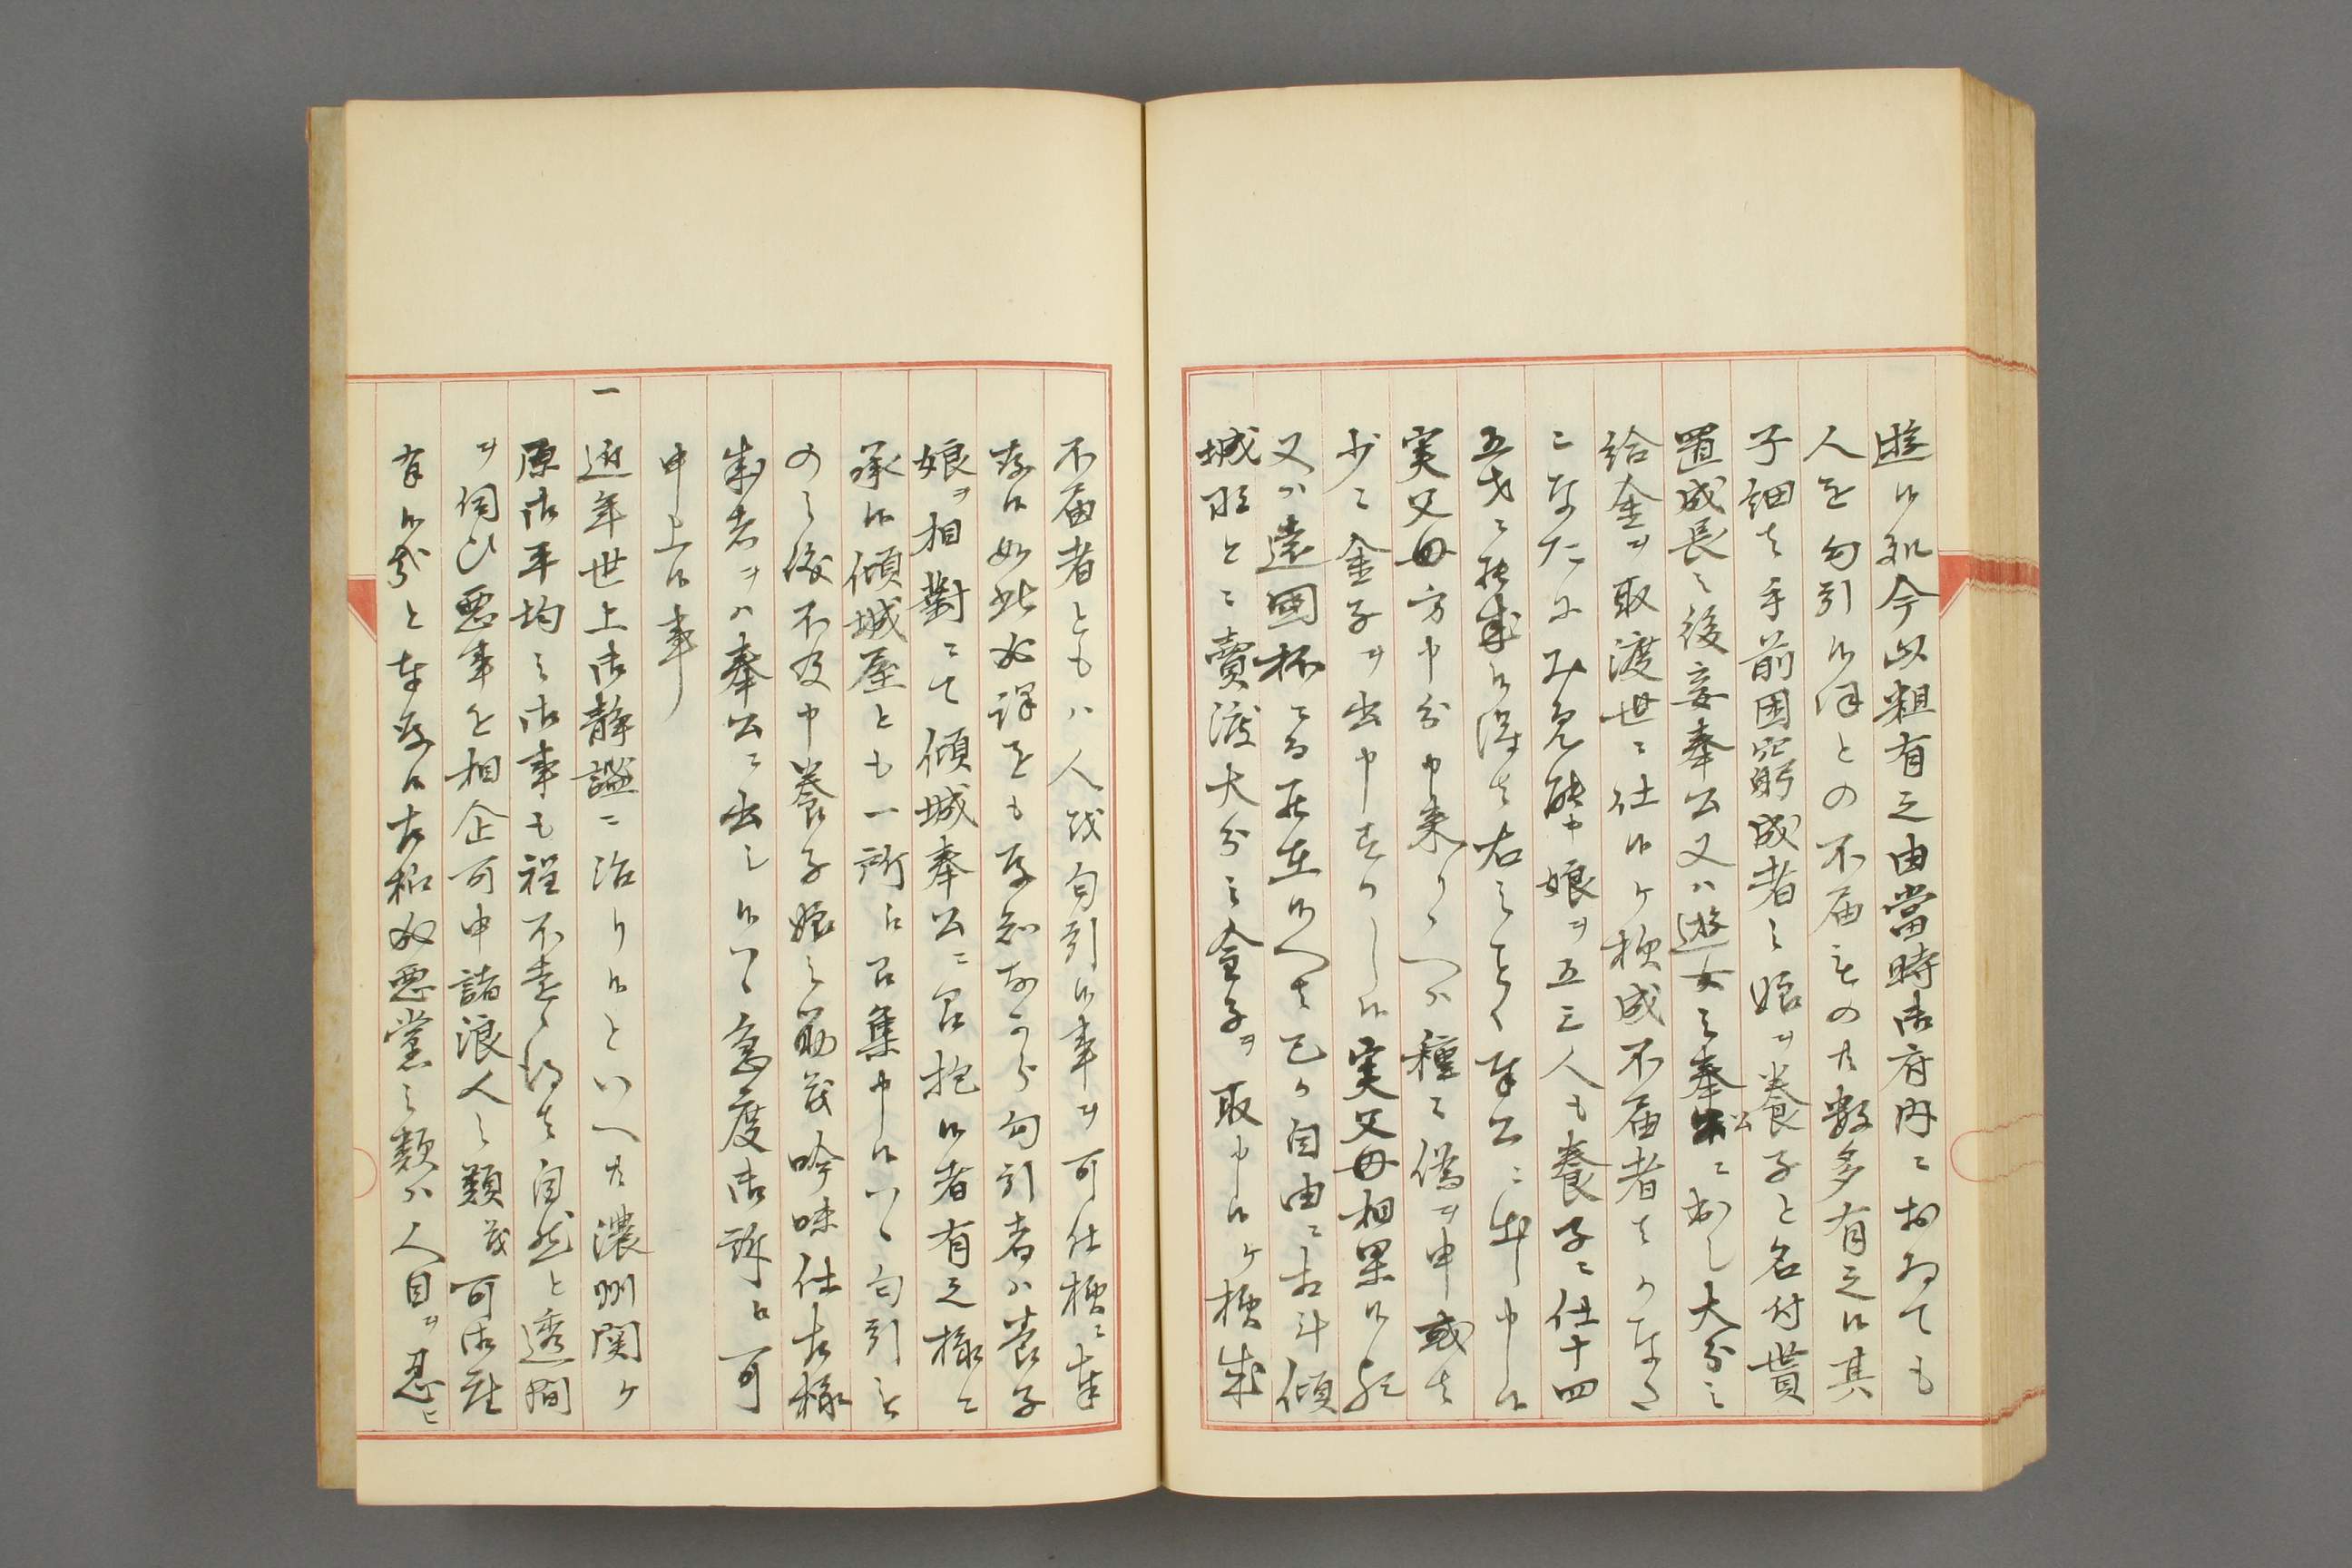 遊候処今以粗有之由當時御府内ニおゐても
人を勾引候なとの不届ものハ数多有之候其
子細ハ手前困窮成者之娘ヲ養子と名付貰
置成長之後妾奉公又ハ遊女之奉公ニ出し大分之
給金ヲ取渡世ニ仕候ケ様成不届者ハかなた
こなたにみ見に申娘ヲ五三人も養子ニ仕十四
五才ニ罷成候得ハ右之ことく奉公ニ出し申候
実父母方申分申来り候へハ種々偽ヲ申或ハ
少々金子ヲ出申すかし候実父母相果候処
又ハ遠国杯ニ而罷在候へハ己か自由ニ相斗傾
城所とニ賣渡大分之金子ヲ取申候ケ様成
不届者ともハ人ヲ勾引候事ヲ可仕様ニ奉
存候如此成訳をも存知なから勾引者ハ養子
娘ヲ相對ニて傾城奉公ニ召抱候者有之様ニ
承候傾城屋とも一所ニ召集申候ハヽ勾引と
の之後不及申養子娘之筋茂吟味仕右様
成者ヲハ奉公ニ出之候ハヽ急度御訴に可
申上候事
一近年世上御静謐ニ治り候といへ共濃州関ケ
原御平均之御事も程不遠候得ハ自然と透間
ヲ伺ひ悪事を相企可申諸浪人之類茂可御座
有候哉と奉存候右躰成悪黨之類ハ人目ヲ忍ヒ